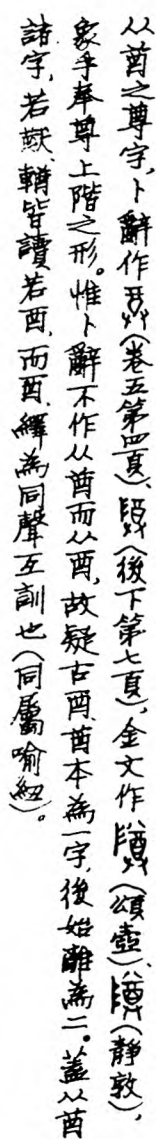 从酋之尊字,卜辭作(卷五第四頁)、(後下第七頁),金文作(頌壺)、(静敦),
象手奉尊上階之形。惟卜辭不作从酋而从酉,故疑古酉、酋本為一字,後始離為二。蓋从酋
諸字,若猷、輶皆讀若酉,而酉、繹為同聲互訓也(同屬喻紐)。